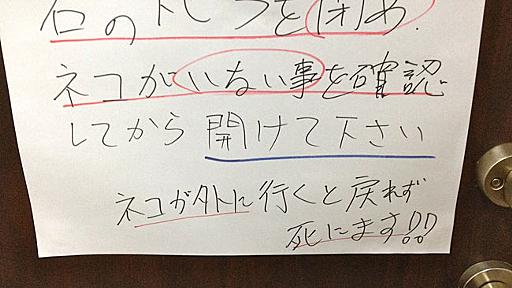 右のトビラを閉め.
ネコがいない事を確認
してから開けて下さい
ネコが外に行くと戻れず
死にます!!